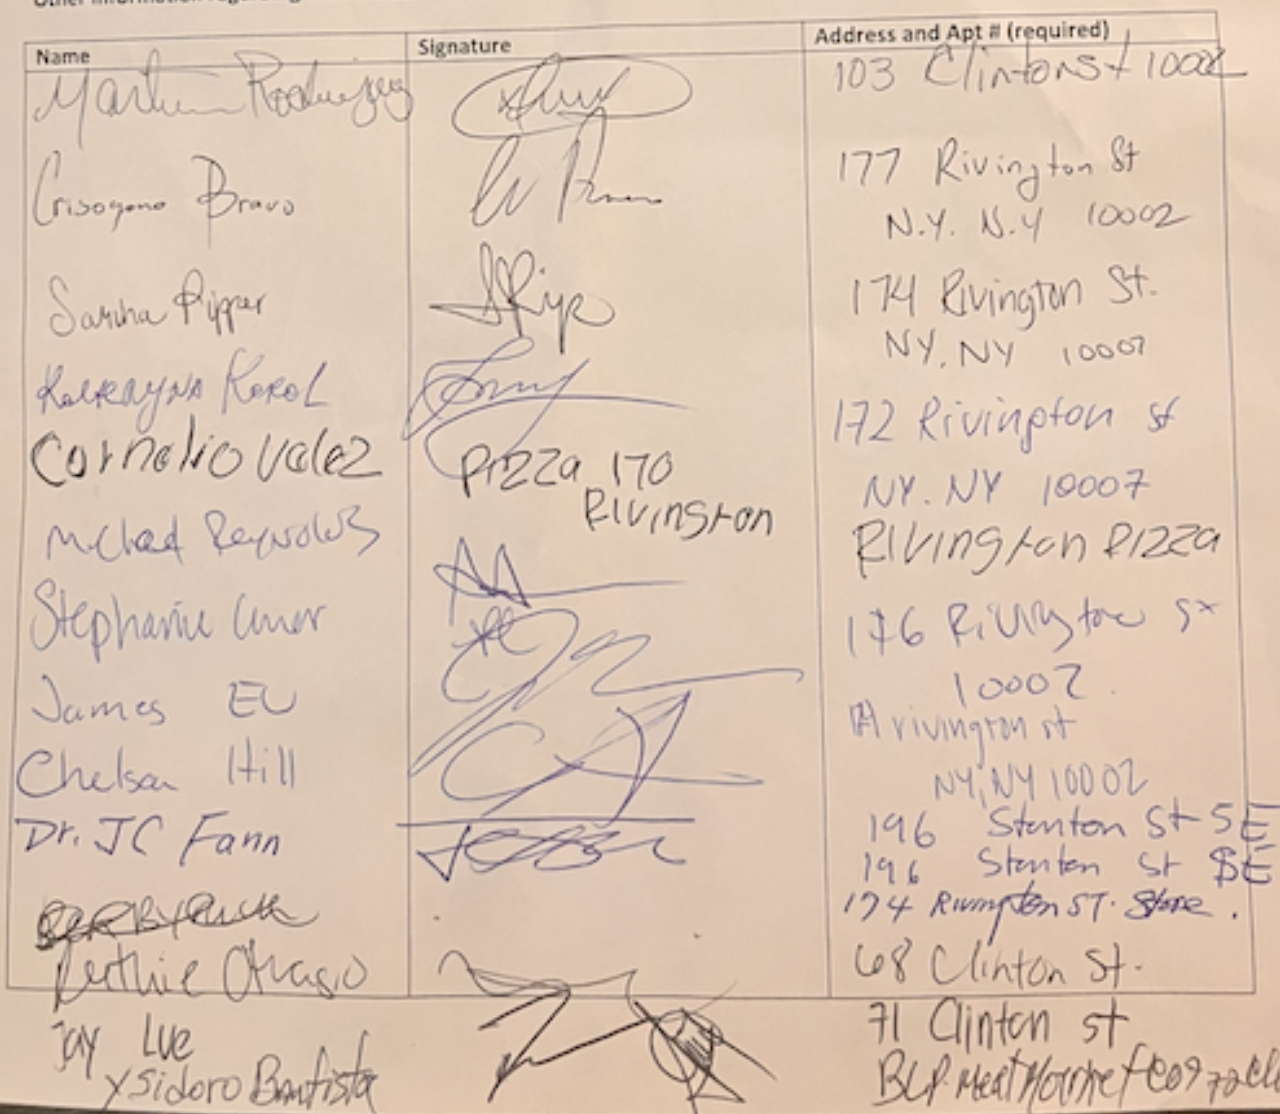 Name Signature Address and Apt # (required)
Martin Rodriguez 103 Clinton st 10002
Crisogono Bravo 177 Rivington St
N.Y. N.Y 10002
Sarina Pipper 174 Rivington St.
NY, NY 10002
Karol 172 Rivington st
NY. NY 10007
Cornelio Valez Pizza 170
Rivington
Rivington Pizza
Reynolds
Stephanie 176 Rivington st
10002
James EU rivington st
NY, NY 10002
Chelsea Hill 196 Stanton St 5E
Dr. JC Fann 196 Stanton St 5E
174 Rivington ST. Store.
68 Clinton St.
Jay Lue 71 Clinton st
Ysidoro Bautista BCP Meat Market